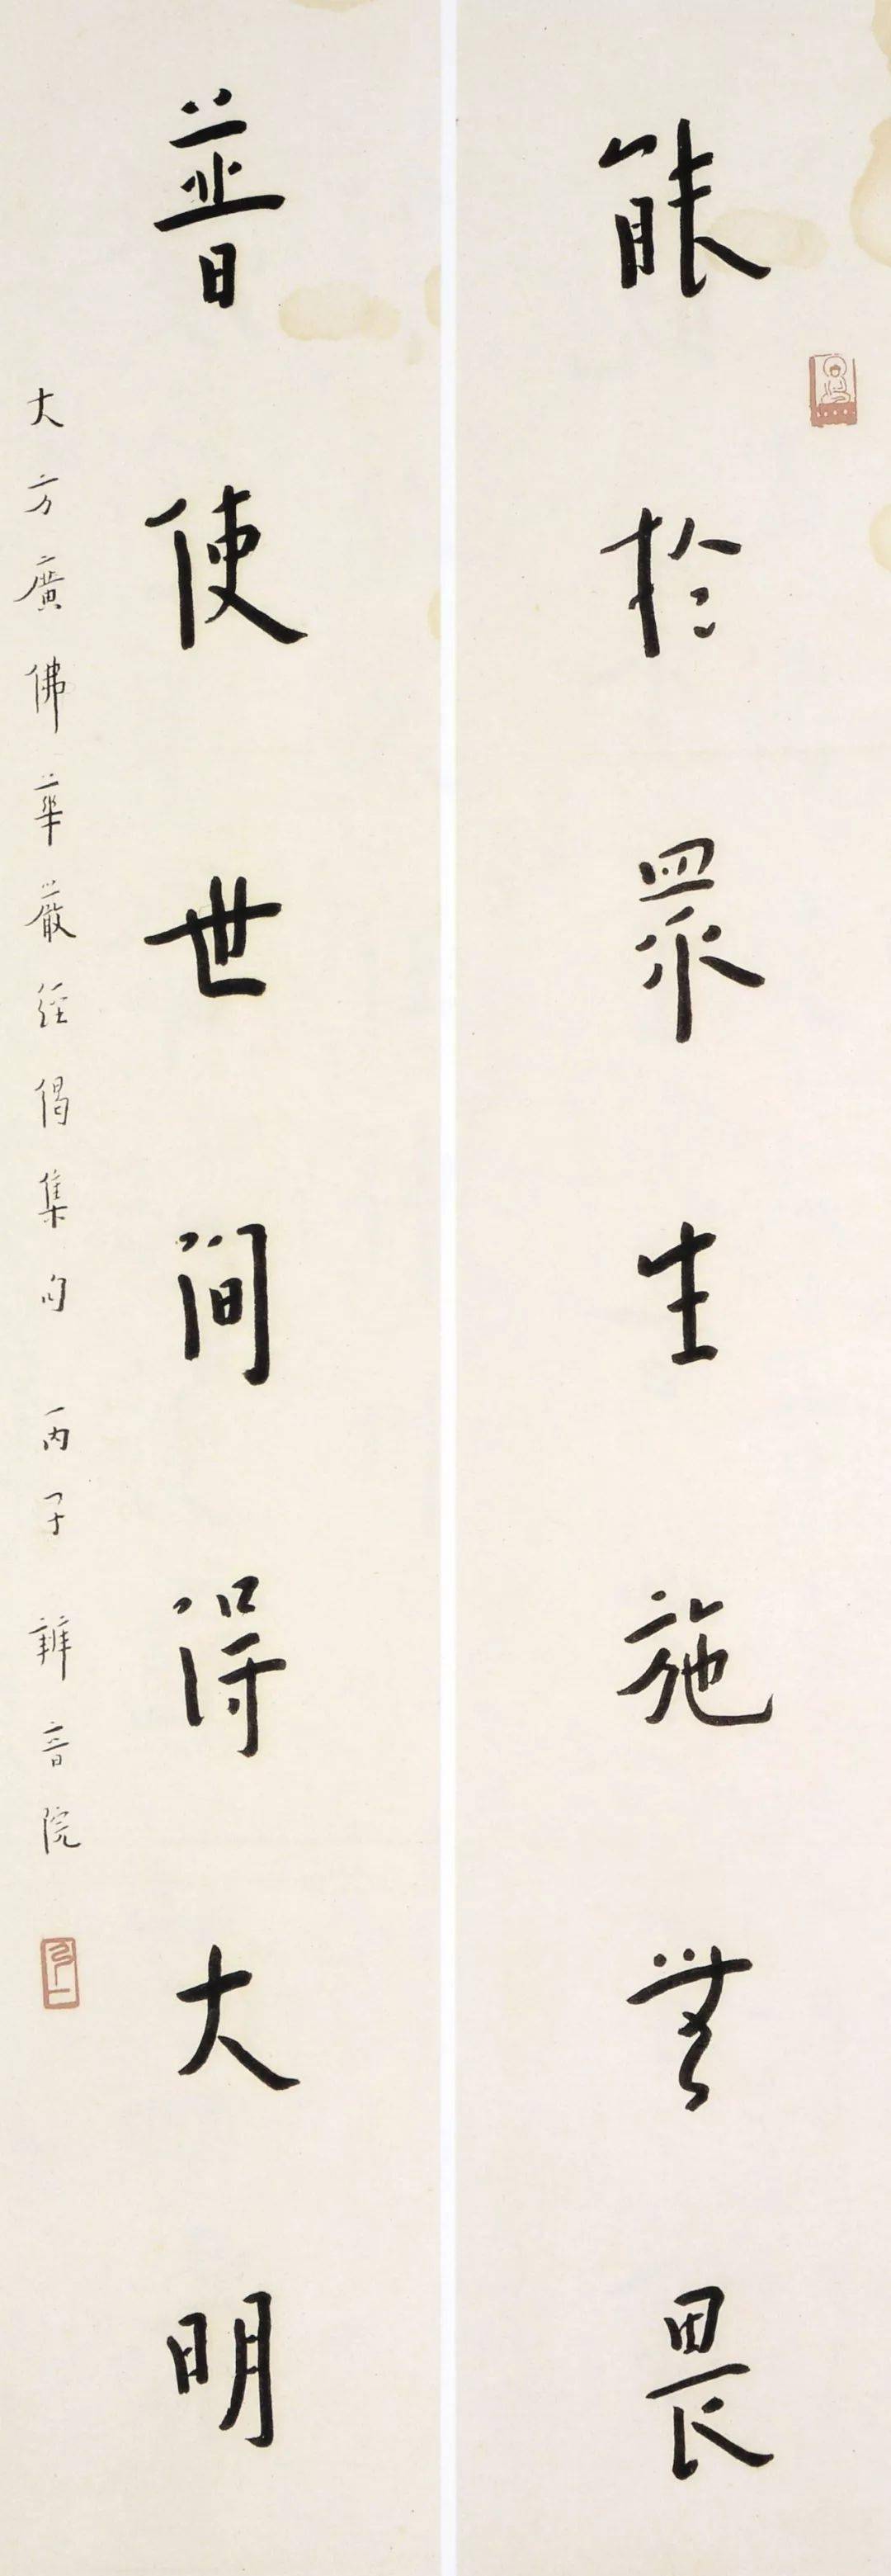 能於眾生施無畏
普使世間得大明
大方廣佛華嚴經偈集句 丙子 辨音院